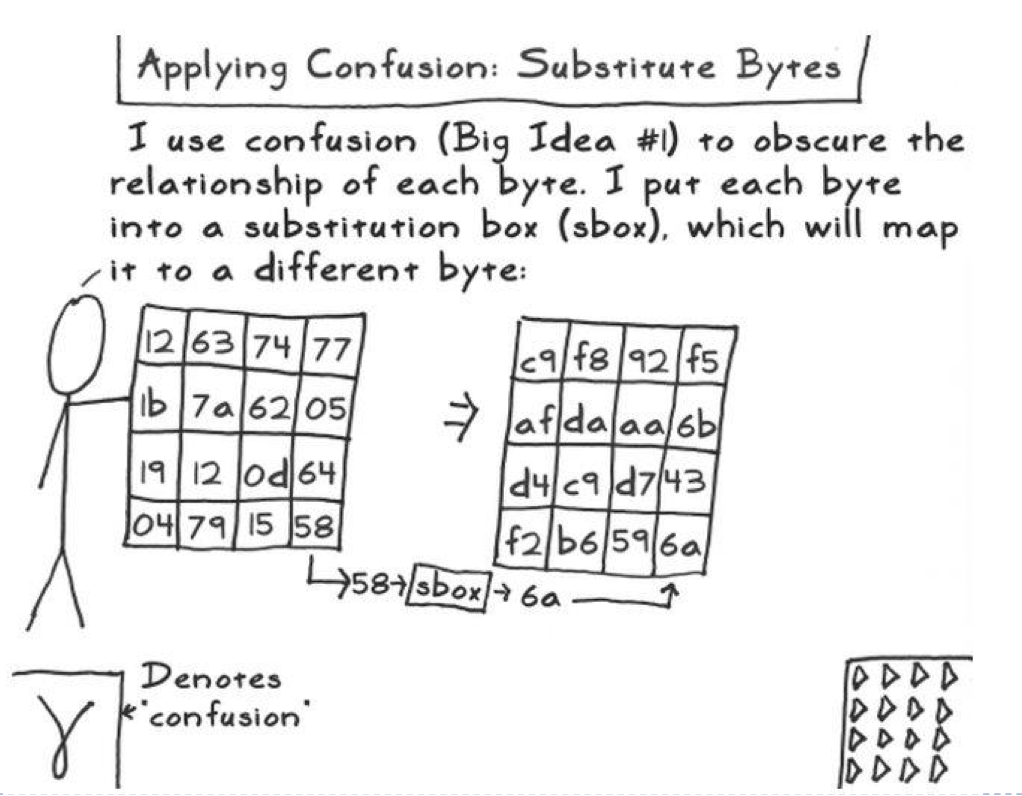 Applying Confusion: Substitute Bytes
I use confusion (Big Idea #1) to obscure the
relationship of each byte. I put each byte
into a substitution box (sbox), which will map
it to a different byte:
12 63 74 77
1b 7a 62 05
19 12 0d 64
04 79 15 58
c9 f8 92 f5
af da aa 6b
d4 c9 d7 43
f2 b6 59 6a
58 sbox 6a
Denotes
"confusion"